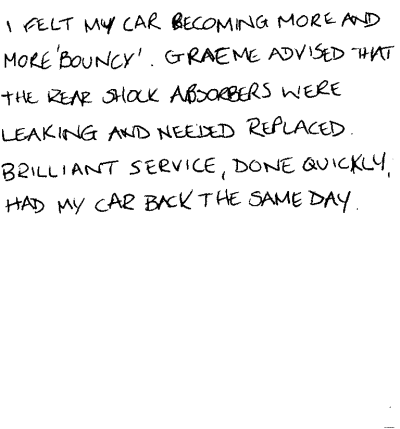 I FELT MY CAR BECOMING MORE AND
MORE 'BOUNCY'. GRAEME ADVISED THAT
THE REAR SHOCK ABSORBERS WERE
LEAKING AND NEEDED REPLACED.
BRILLIANT SERVICE, DONE QUICKLY,
HAD MY CAR BACK THE SAME DAY.